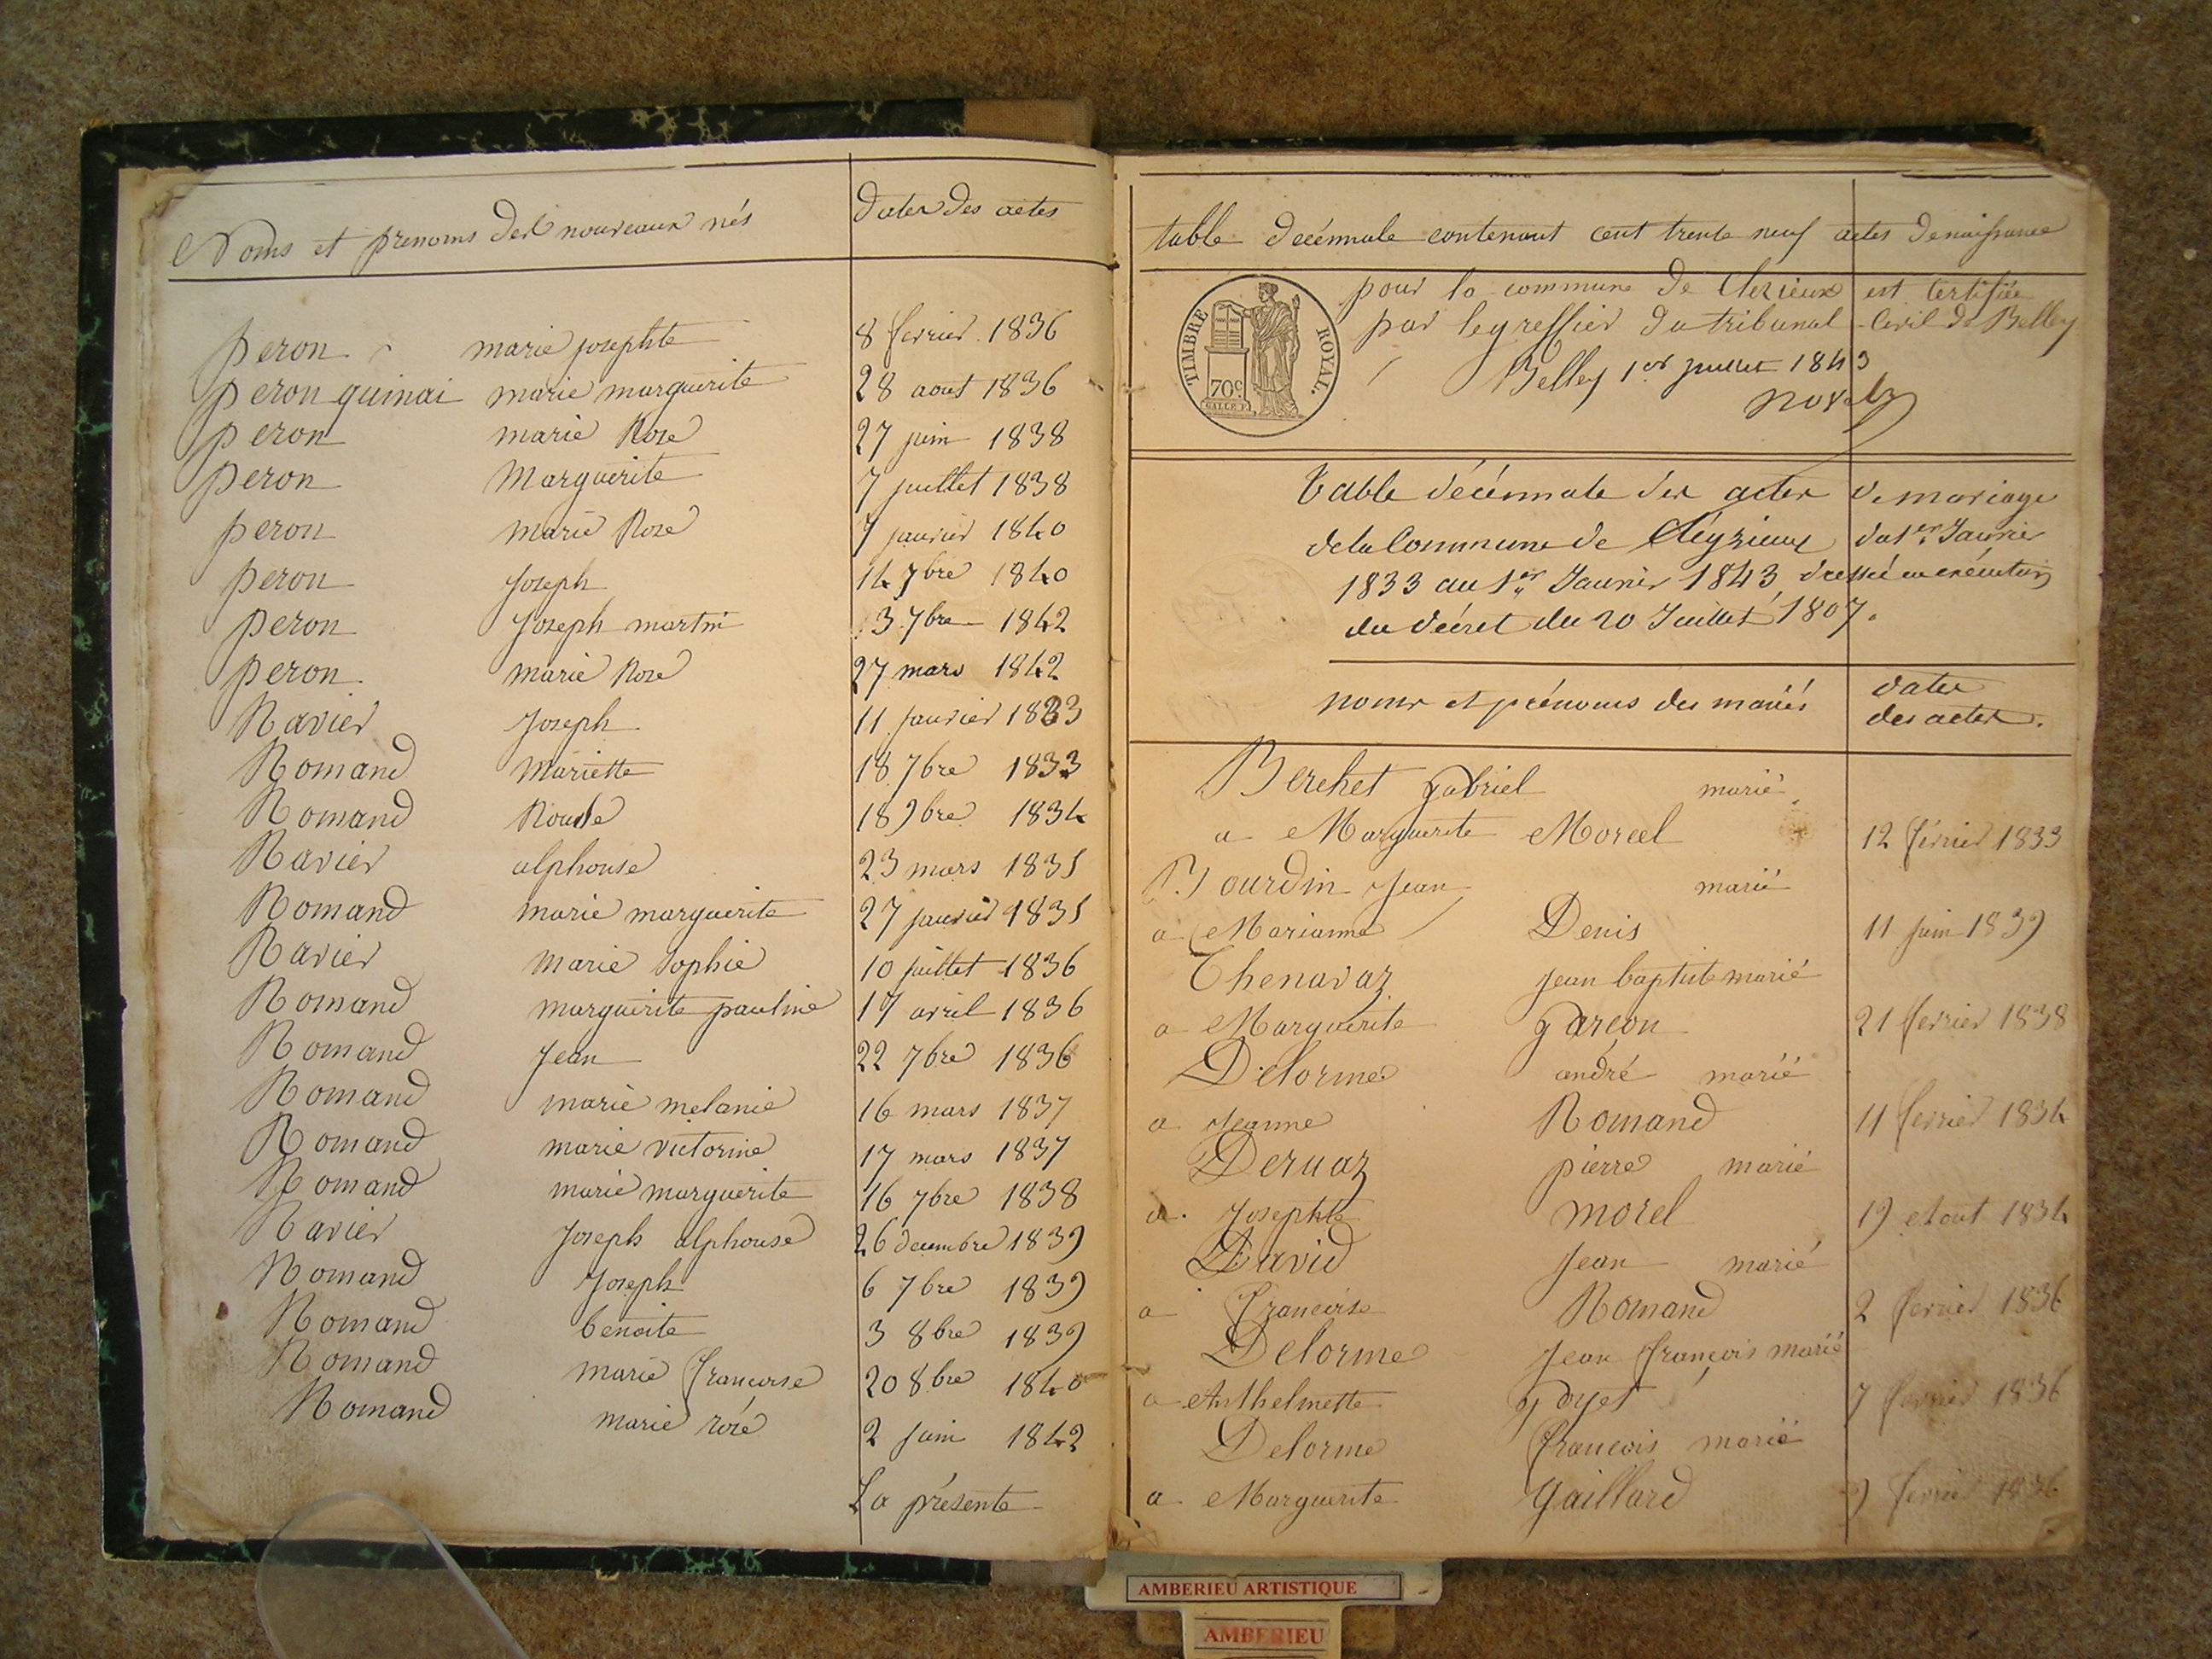 Noms et prenoms des nouveaux nés dates des actes
peron marie josephte 8 fevrier 1836
peron guinai marie marguerite 28 aout 1836
peron marie Rose 27 juin 1838
peron Marguerite 7 juillet 1838
peron marie Rose 7 janvier 1840
peron Joseph 14 7bre 1840
peron Joseph martin 3 7bre 1842
peron marie Rose 27 mars 1842
Ravier Joseph 11 janvier 1833
Romand Mariette 18 7bre 1833
Romand 18 9bre 1834
Ravier alphonse 23 mars 1835
Romand marie marguerite 27 janvier 1835
Ravier marie sophie 10 juillet 1836
Romand marguerite pauline 17 avril 1836
Romand Jean 22 7bre 1836
Romand marie melanie 16 mars 1837
Romand marie victorine 17 mars 1837
Romand marie marguerite 16 7bre 1838
Ravier Joseph alphonse 26 decembre 1839
Romand Joseph 6 7bre 1839
Romand benoite 3 8bre 1839
Romand marie francoise 20 8bre 1840
Romand marie rose 2 juin 1842
La présente
table decénnale contenant cent trente neuf actes de naissance
pour la commune de Clezieux est certifiée
par le greffier du tribunal Civil de Belley
Belley 1er juillet 1843
TIMBRE ROYAL.
70c.
Table décénnale des actes de mariage
de la Commune de Cleyzieux du 1er Janvier
1833 au 1er Janvier 1843, dressée en exécution
du décret du 20 Juillet 1807.
noms et prénoms des mariés dates
des actes.
Berchet gabriel marié
a Marguerite Morel 12 février 1833
Bourdin Jean marié
a Marianne Denis 11 juin 1839
Chenavaz jean baptiste marié
a Marguerite garcon 21 fevrier 1838
Delorme andré marié
a Jeanne Romand 11 fevrier 1834
Dervaz pierre marié
a Josephte morel 19 Aout 1834
David Jean marié
a francoise Romand 2 fevrier 1836
Delorme Jean françois marié
a Anthelmette goyet 7 fevrier 1836
Delorme francois marié
a Marguerite gaillard 9 fevrier 1836
AMBERIEU ARTISTIQUE
AMBERIEU